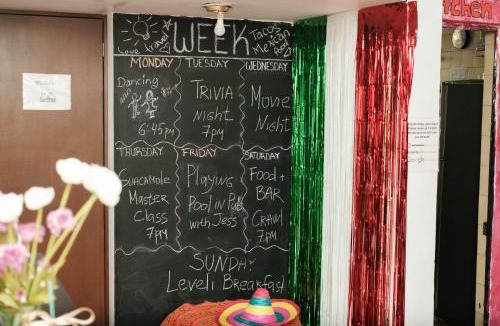 Kitchen
Love
travel
WEEK
Tacos
Mexican
MONDAY
Dancing
6:45pm
TUESDAY
TRIVIA
Night
7pm
WEDNESDAY
MOVIE
Night
THURSDAY
GUACAMOLE
Master
Class
7pm
FRIDAY
Playing
Pool in Pub
with Jess
SATURDAY
Food +
BAR
CRAWL
7pm
SUNDAY
Leveli Breakfast
Google